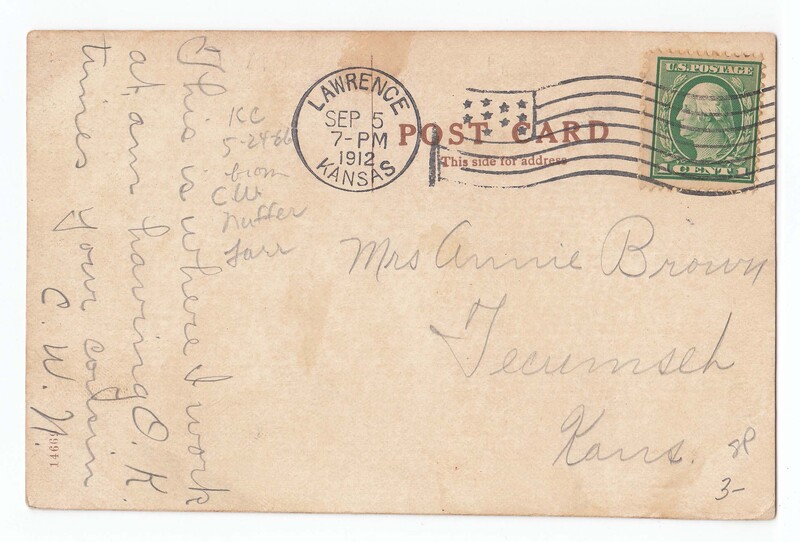 LAWRENCE
SEP 5
7-PM
1912
KANSAS
POST CARD
This side for address
U.S. POSTAGE
1 CENT 1
This is where I work
at am having O.K.
times your cousin
C. W. N.
KC
5-24-66
from
C W
Nuffer
Mrs Annie Brown
Tecumseh
Kans.
3-
1466